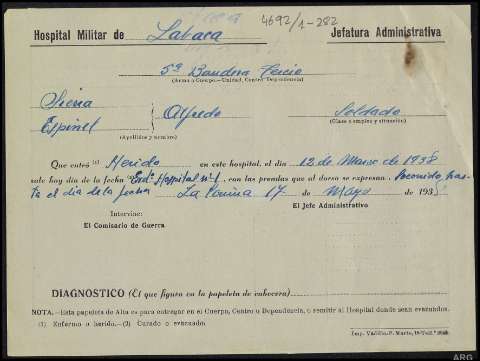 4692/1-282
Hospital Militar de Labaca Jefatura Administrativa
5ª Bandera Tercio
(Arma o Cuerpo.—Unidad, Centro o Dependencia)
Sierra
Espinel Alfredo Soldado
(Apellidos y nombre) (Clase o empleo y situación)
Que entró (1) Herido en este hospital, el día 12 de Marzo de 1938
sale hoy día de la fecha Evdº Hospital nº 1, con las prendas que al dorso se expresan. Socorrido, has-
ta el día de la fecha La Coruña 17 de Mayo de 1938
Intervine: El Jefe Administrativo
El Comisario de Guerra
DIAGNOSTICO (El que figura en la papeleta de cabecera)
NOTA.—Esta papeleta de Alta es para entregar en su Cuerpo, Centro o Dependencia, o remitir al Hospital donde sean evacuados.
(1) Enfermo o herido.—(2) Curado o evacuado.
Imp. Vadillo.
ARG